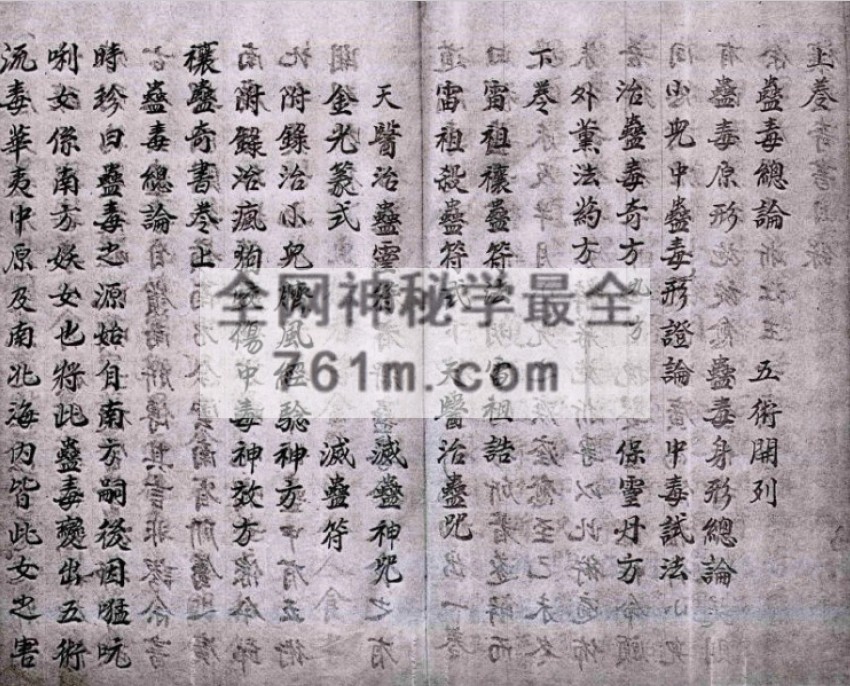 上卷
蠱毒總論 五術開列
蠱毒原形 蠱毒身形總論
小兒中蠱毒形證論 中毒試法
治蠱毒奇方 保靈丹方
外薰法葯方
下卷
雷祖禳蠱符法 雷祖誥
雷祖殺蠱符式 天醫治蠱咒
天醫治蠱靈符 滅蠱神咒
金光篆式 滅蠱符
附錄治小兒臍風經驗神方
附錄治瘋狗咬傷中毒神效方
禳蠱奇書卷上
蠱毒總論
時珍曰蠱毒之源始自南方嗣後因猛吭
唎女係南方妖女也將此蠱毒變出五術
流毒華夷中原及南北海內皆此女之害
全网神秘学最全
761m.com